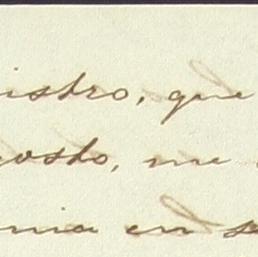 istro, que
osto, me
nia en se